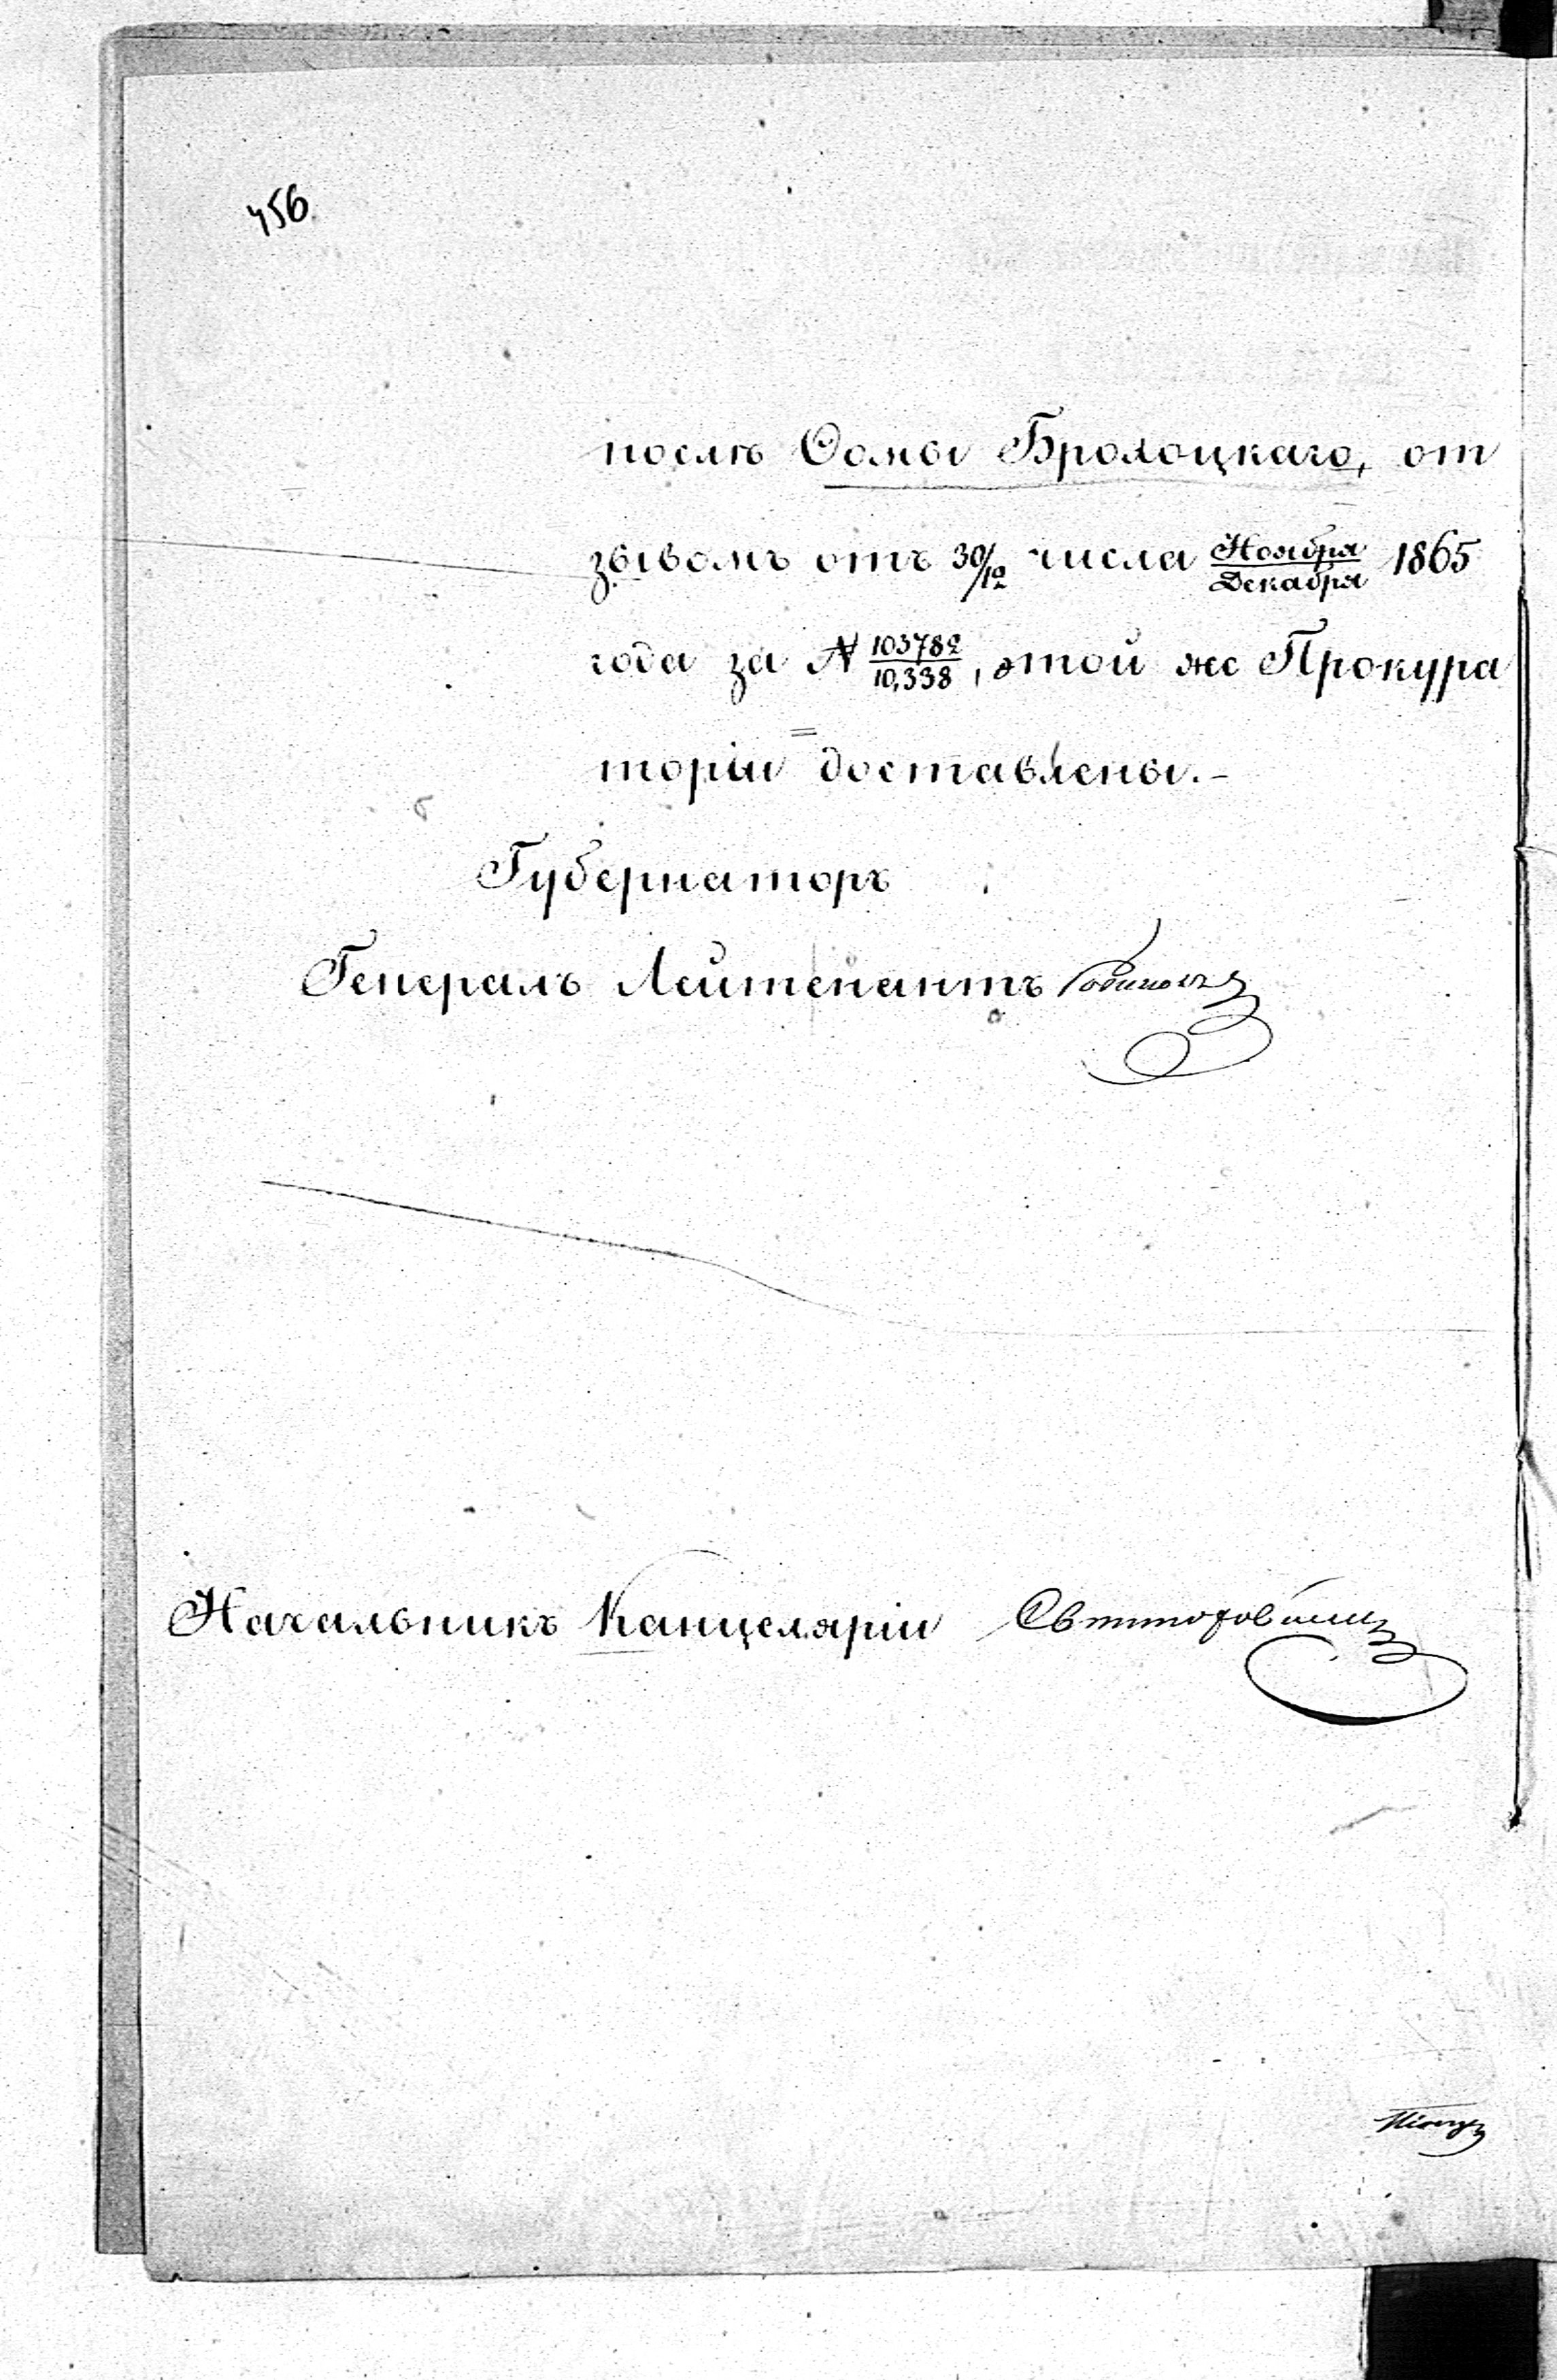 456
послѣ Ѳомы Бролоцкаго, от
зывомъ отъ 30/12 числа Ноября/Декабря 1865
года за № 103782/10,338, этой же Прокура
торіи доставлены.-
Губернаторъ
Генералъ Лейтенантъ
Начальникъ Канцеляріи